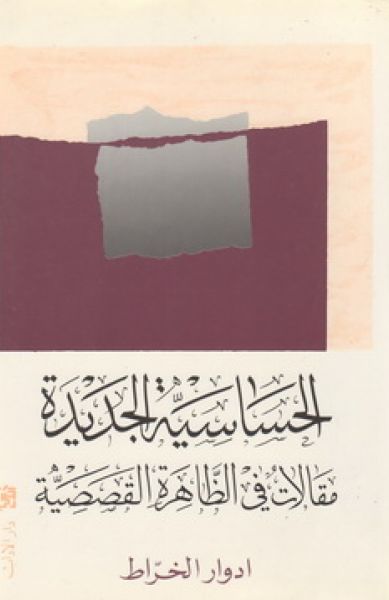 الحساسيّة الجديدة
مقالاتٌ في الظَّاهرة القصصيّة
ادوار الخرّاط
دار الآداب